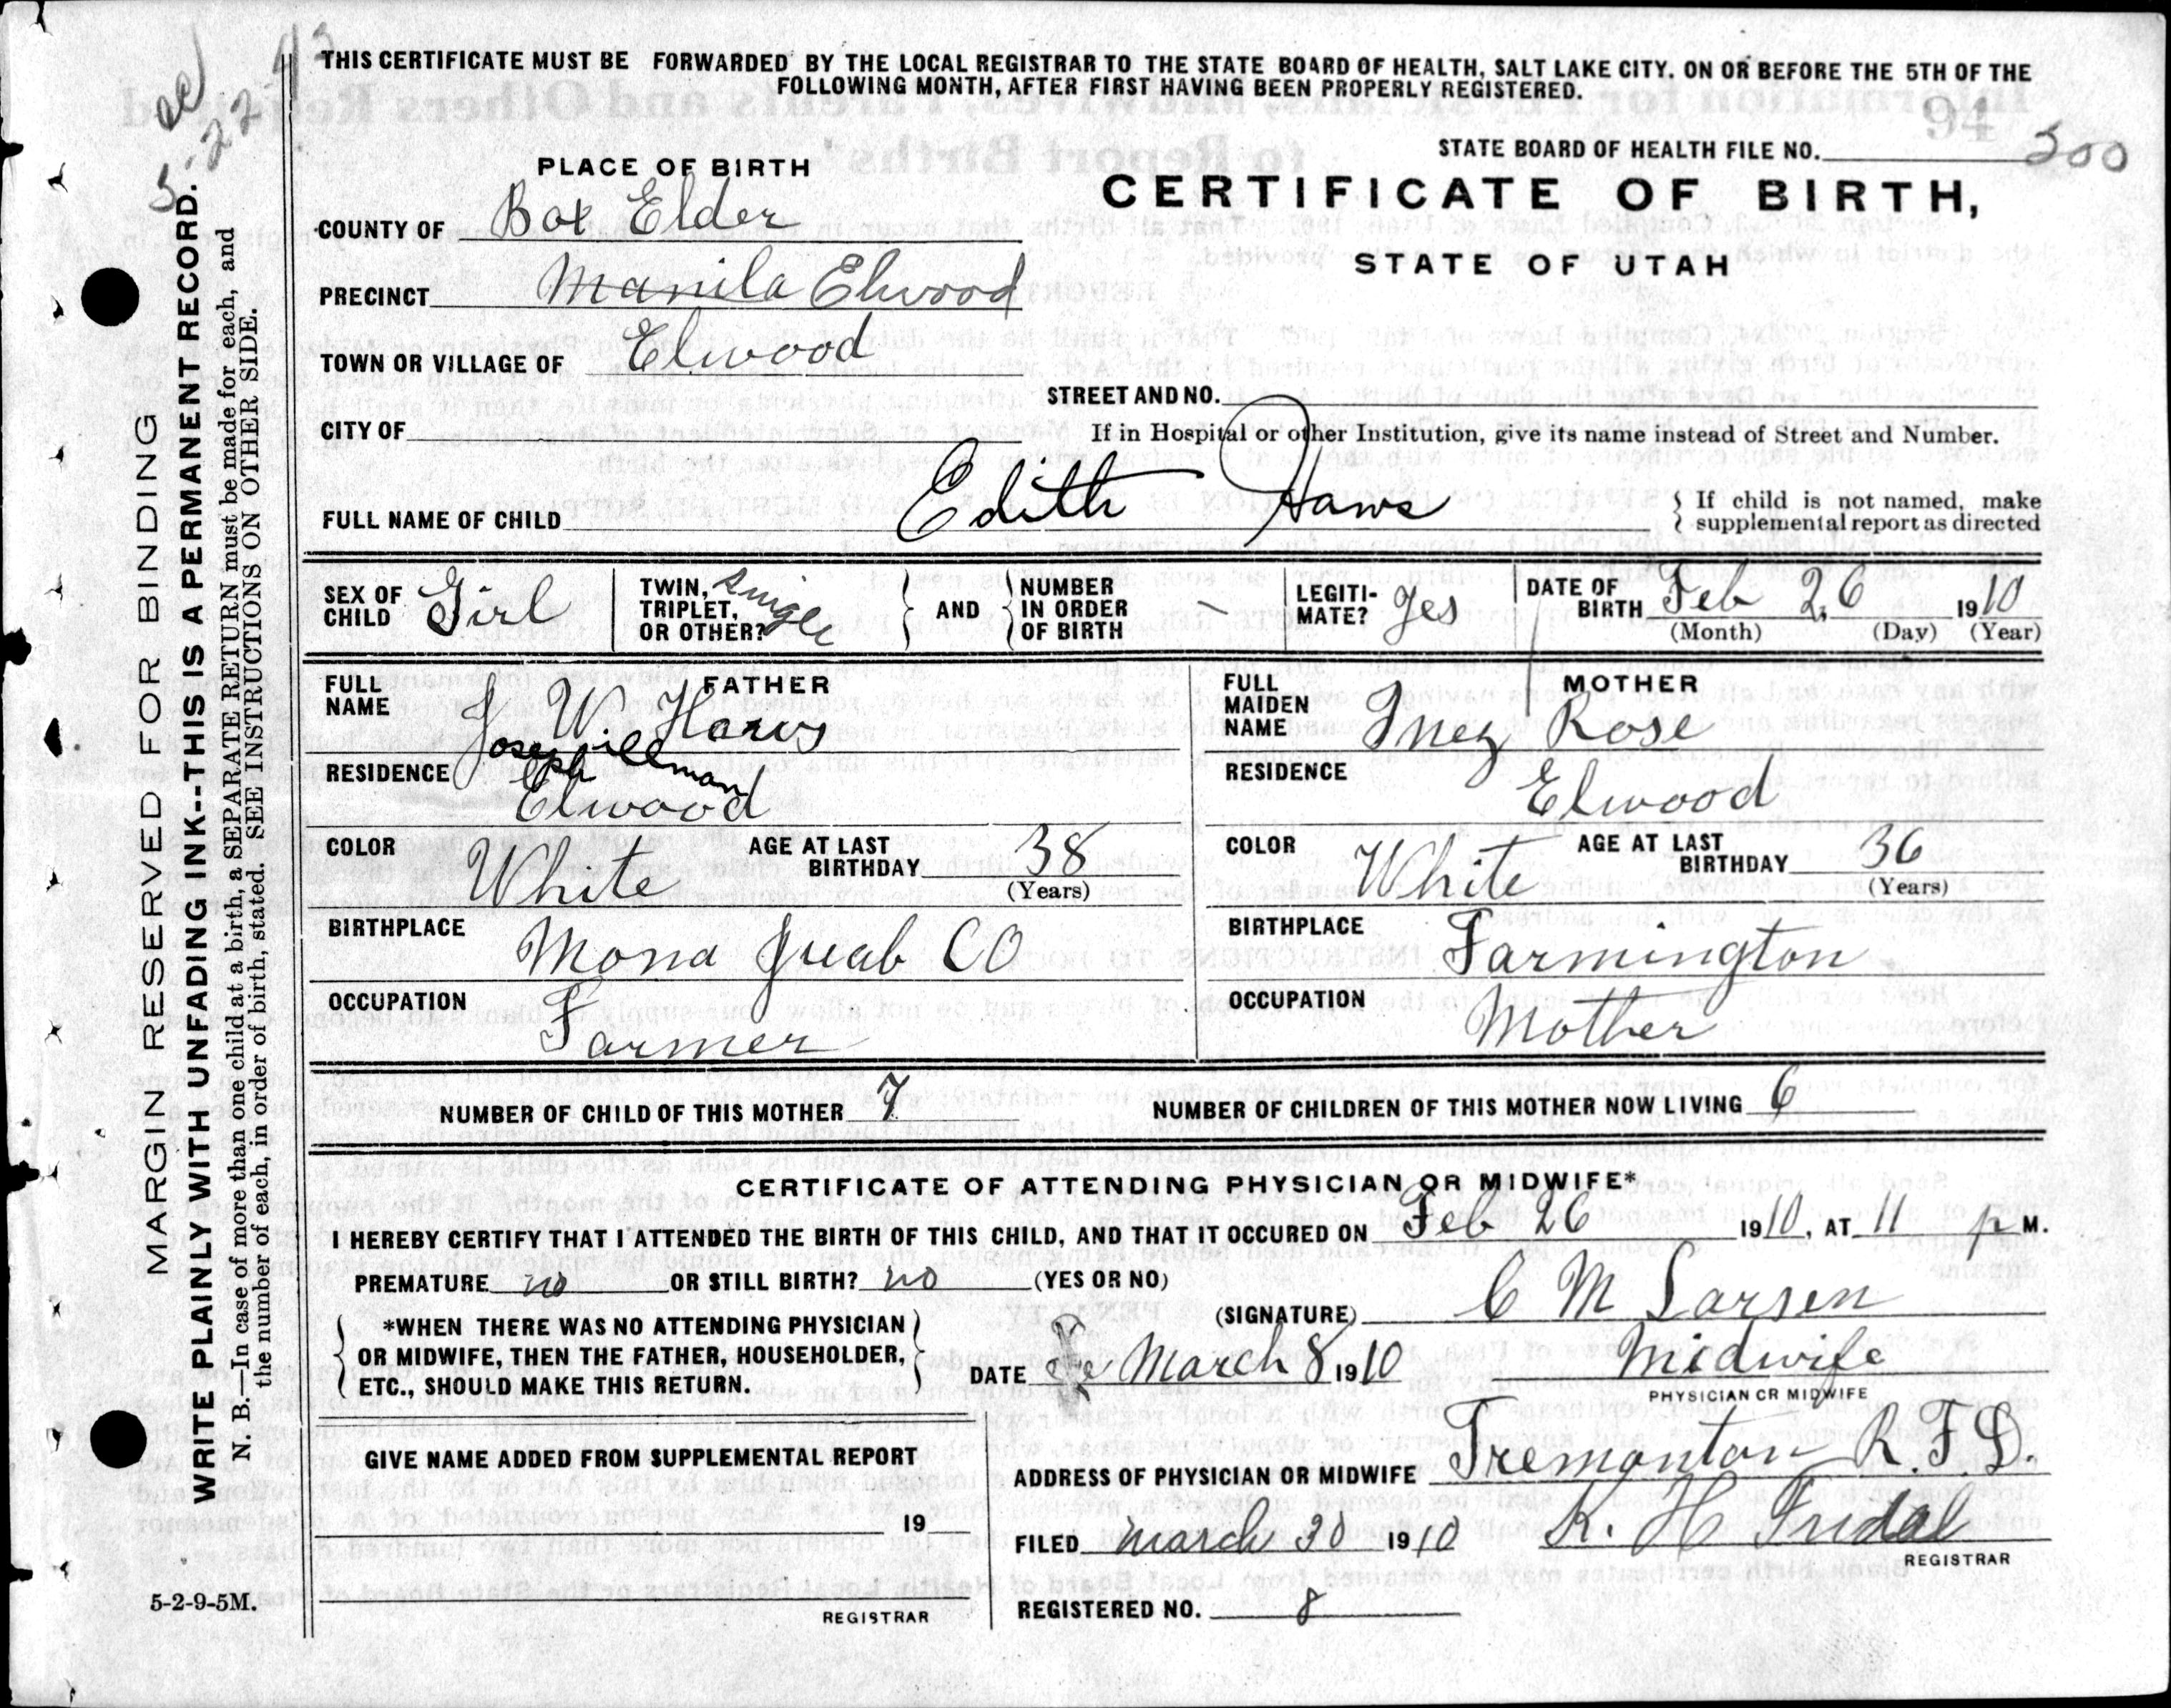 THIS CERTIFICATE MUST BE FORWARDED BY THE LOCAL REGISTRAR TO THE STATE BOARD OF HEALTH, SALT LAKE CITY. ON OR BEFORE THE 5TH OF THE
FOLLOWING MONTH, AFTER FIRST HAVING BEEN PROPERLY REGISTERED.
94
STATE BOARD OF HEALTH FILE NO. 300
PLACE OF BIRTH
CERTIFICATE OF BIRTH,
STATE OF UTAH
COUNTY OF Box Elder
PRECINCT Manila Elwood
TOWN OR VILLAGE OF Elwood
STREET AND NO.
CITY OF
If in Hospital or other Institution, give its name instead of Street and Number.
FULL NAME OF CHILD Edith Haws
If child is not named, make
supplemental report as directed
SEX OF CHILD Girl
TWIN, TRIPLET, OR OTHER? single
AND
NUMBER IN ORDER OF BIRTH –
LEGITI-MATE? Yes
DATE OF BIRTH Feb 26 1910
(Month) (Day) (Year)
FATHER
FULL NAME J W. Haws
Joseph illman
RESIDENCE Elwood
COLOR White
AGE AT LAST BIRTHDAY 38
(Years)
BIRTHPLACE Mona Juab CO
OCCUPATION Farmer
MOTHER
FULL MAIDEN NAME Inez Rose
RESIDENCE Elwood
COLOR White
AGE AT LAST BIRTHDAY 36
(Years)
BIRTHPLACE Farmington
OCCUPATION Mother
NUMBER OF CHILD OF THIS MOTHER 7
NUMBER OF CHILDREN OF THIS MOTHER NOW LIVING 6
CERTIFICATE OF ATTENDING PHYSICIAN OR MIDWIFE*
I HEREBY CERTIFY THAT I ATTENDED THE BIRTH OF THIS CHILD, AND THAT IT OCCURED ON Feb 26 1910, AT 11 P M.
PREMATURE no OR STILL BIRTH? no (YES OR NO)
(SIGNATURE) C M Larsen
*WHEN THERE WAS NO ATTENDING PHYSICIAN
OR MIDWIFE, THEN THE FATHER, HOUSEHOLDER,
ETC., SHOULD MAKE THIS RETURN.
DATE March 8 1910
Midwife
PHYSICIAN OR MIDWIFE
GIVE NAME ADDED FROM SUPPLEMENTAL REPORT
19
REGISTRAR
ADDRESS OF PHYSICIAN OR MIDWIFE Tremonton R.F.D.
FILED March 30 1910 K. H Fridal
REGISTRAR
REGISTERED NO. 8
MARGIN RESERVED FOR BINDING
WRITE PLAINLY WITH UNFADING INK--THIS IS A PERMANENT RECORD.
N. B.—In case of more than one child at a birth, a SEPARATE RETURN must be made for each, and
the number of each, in order of birth, stated. SEE INSTRUCTIONS ON OTHER SIDE.
5-2-9-5M.